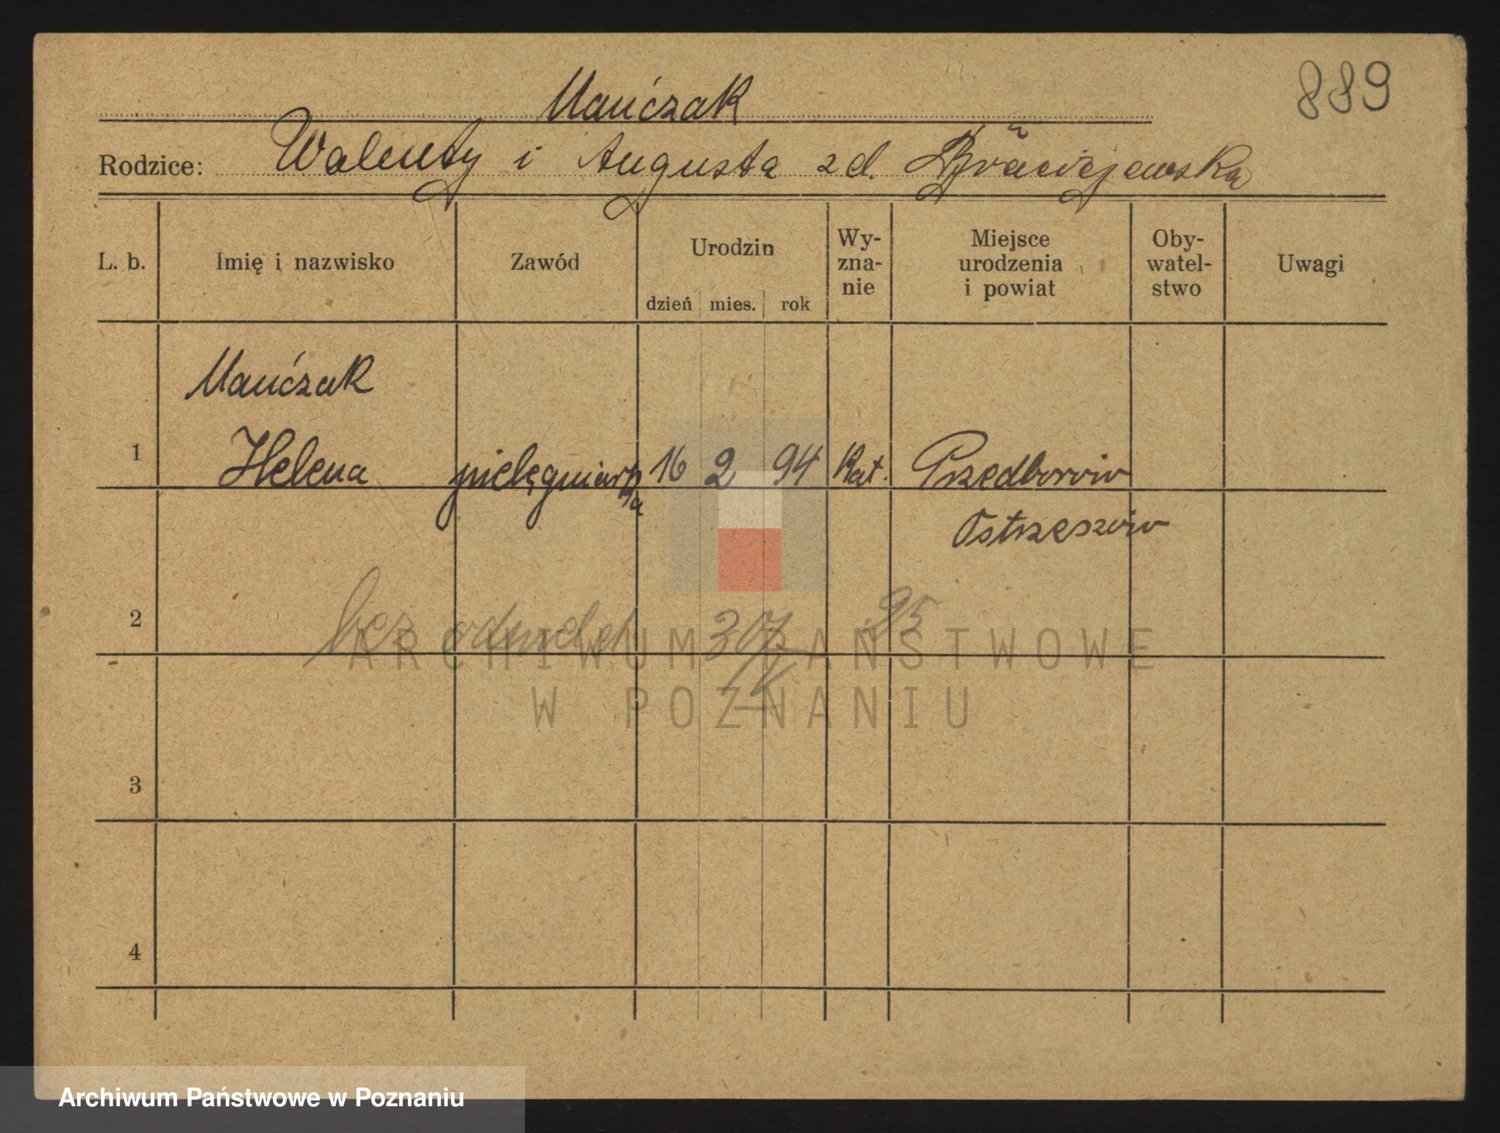 889
Mańczak
Rodzice: Walenty i Augusta zd.
L. b. Imię i nazwisko Zawód Urodzin dzień mies. rok Wy-zna-nie Miejsce urodzenia i powiat Oby-watel-stwo Uwagi
Mańczak
1 Helena pielęgniarka 16 2 94 Kat. Przedborów
Ostrzeszów
2 bez 30/ 35
ARCHIWUM PAŃSTWOWE
W POZNANIU
3
4
Archiwum Państwowe w Poznaniu